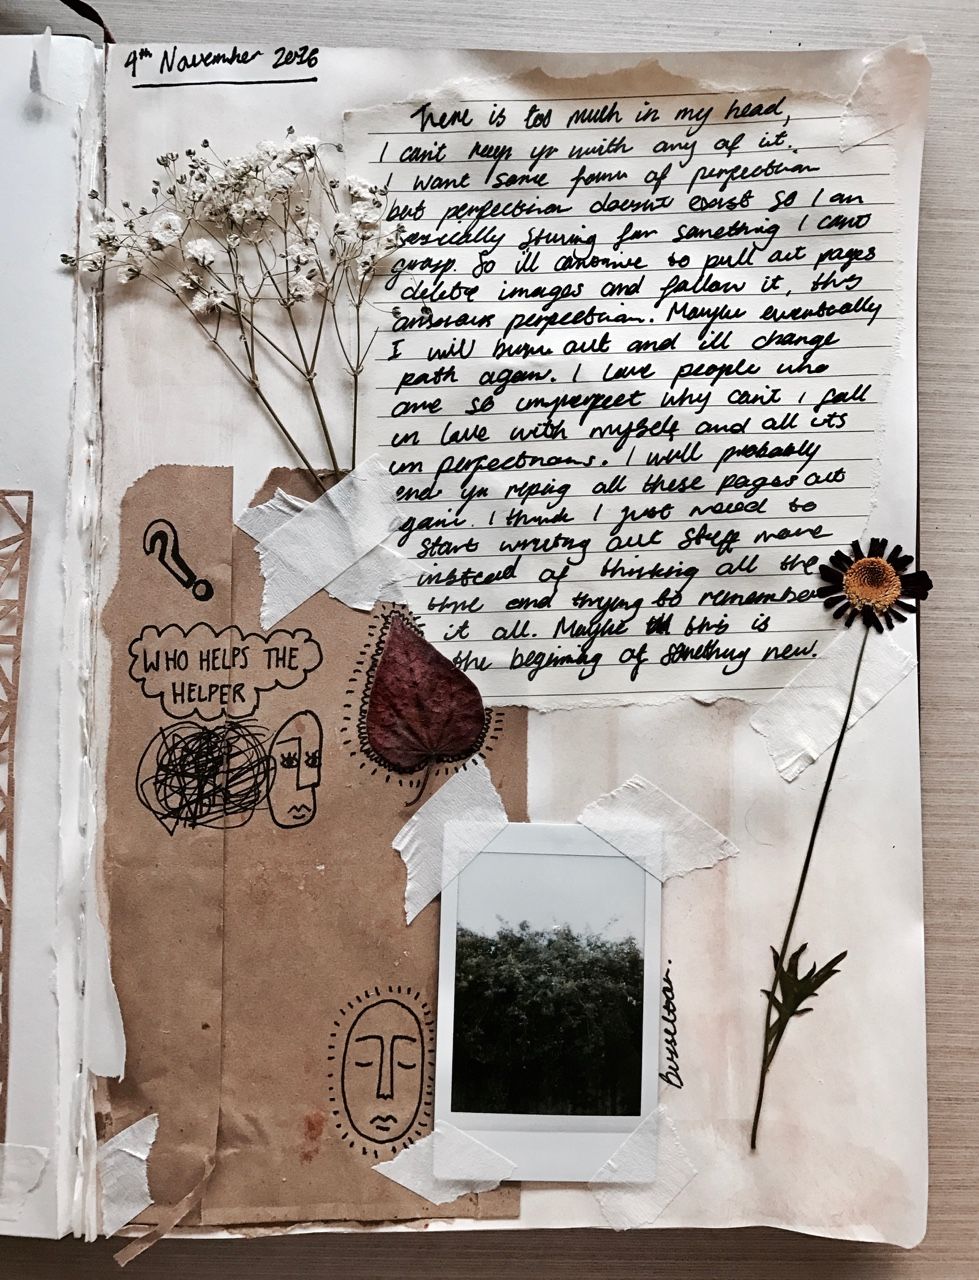 4th November 2016
There is too much in my head,
I can't keep up with any of it.
I want some form of perfection
but perfection doesn't exist so I am
basically striving for something I cant
grasp. So ill continue to pull out pages
delete images and follow it, this
perfection. Maybe eventually
I will burn out and ill change
path again. I love people who
are so imperfect why can't I fall
in love with myself and all its
imperfections. I will probably
end up riping all these pages out
again. I think I just need to
start writing out stuff more
instead of thinking all the
time and trying to remember
it all. Maybe this is
the begining of something new.
?
WHO HELPS THE
HELPER